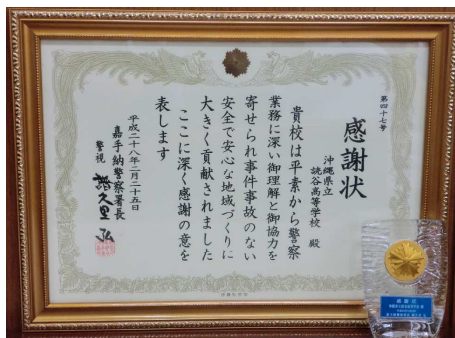 第四十七号
感謝状
沖縄県立
読谷高等学校 殿
貴校は平素から警察
業務に深い御理解と御協力を
寄せられ事件事故のない
安全で安心な地域づくりに
大きく貢献されました
ここに深く感謝の意を
表します
平成二十八年二月二十五日
嘉手納警察署長
警視
感謝状